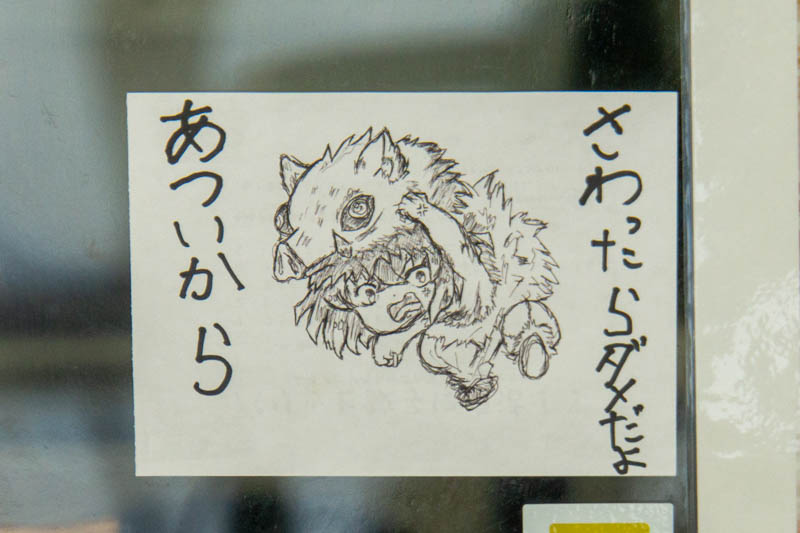 さわったらダメだよ
あついから